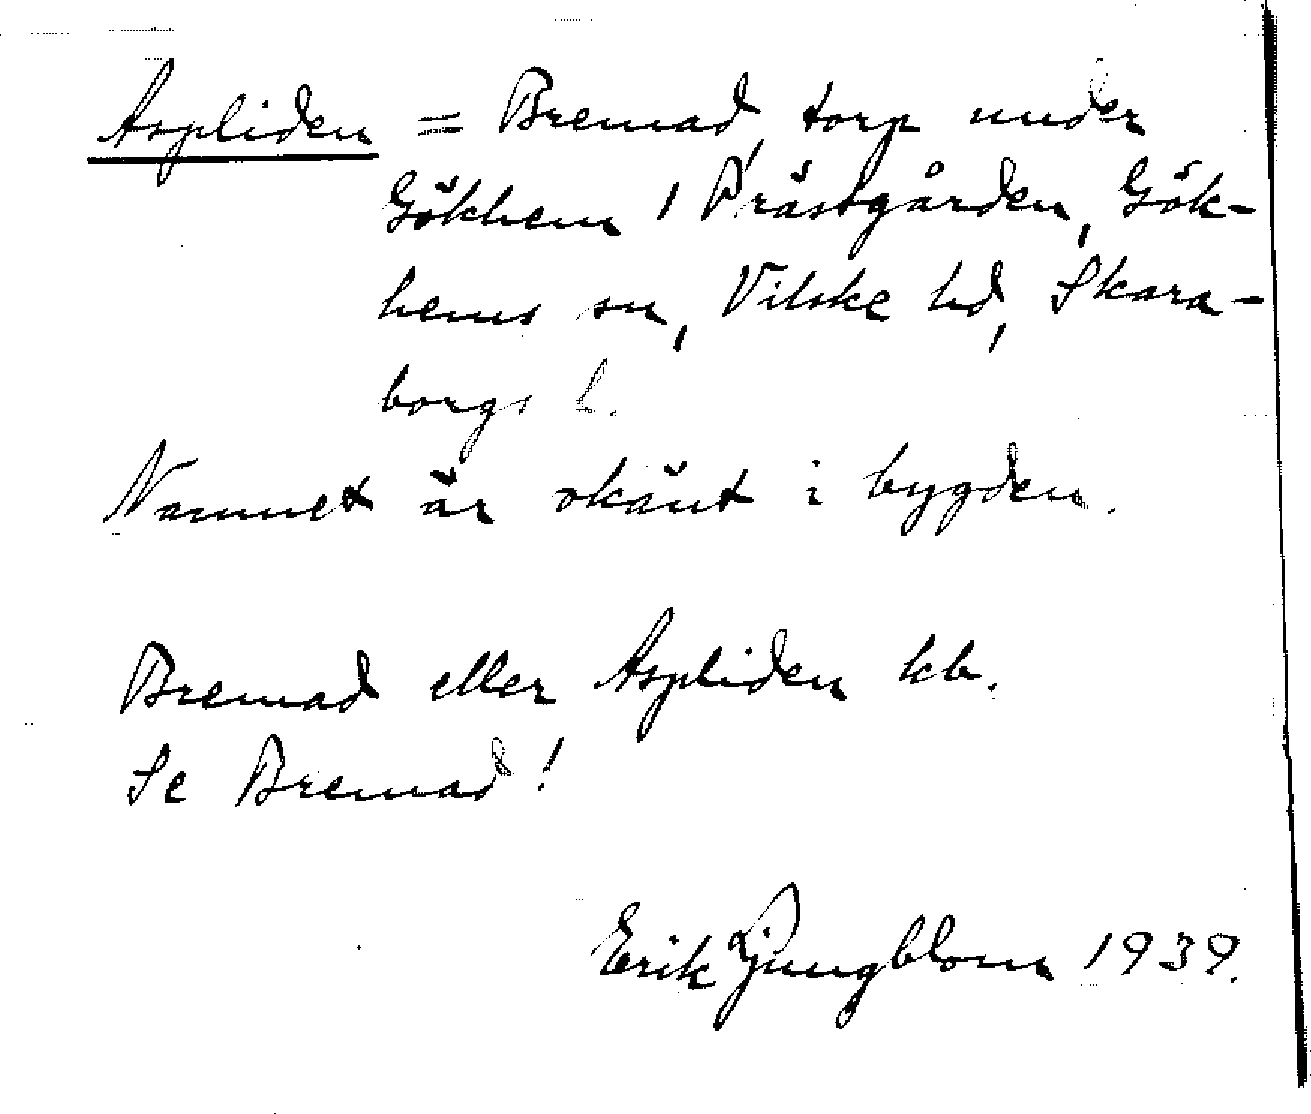 Aspliden = Bremad, torp under
Gökhem 1 Prästgården, Gök-
hems sn, Vilske hd, Skara-
borgs l.
Namnet är okänt i bygden.
Bremad eller Aspliden kb.
Se Bremad!
Erik Ljungblom 1939.